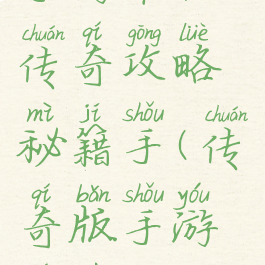 chuán qí gōng lüè
传奇攻略
mì jí shǒu chuán
秘籍手(传
qí bǎn shǒu yóu
奇版手游